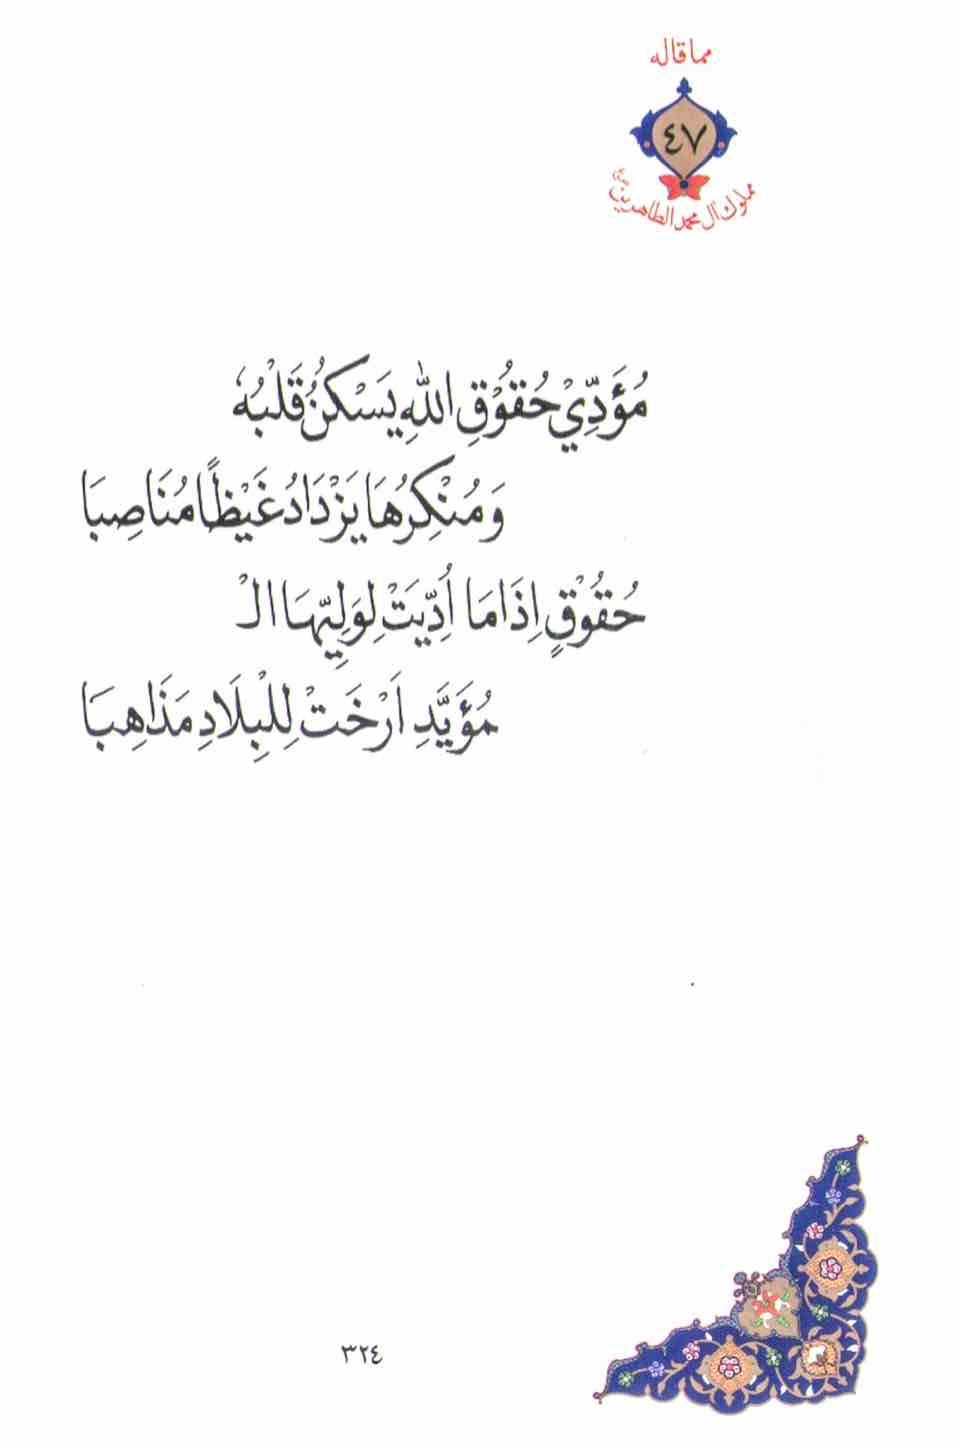 مما قاله
٤٧
مملوك آل محمد الطاهرين
مُؤَدِّيْ حُقُوْقِ اللهِ يَسْكُنُ قَلْبُهُ
وَمُنْكِرُهَا يَزْدَادُ غَيْظًا مُنَاصِبَا
حُقُوْقٍ اِذَا مَا اُدِّيَتْ لِوَلِيِّهَا الْـ
مُؤَيَّدِ اَرْخَتْ لِلْبِلَادِ مَذَاهِبَا
٣٢٤